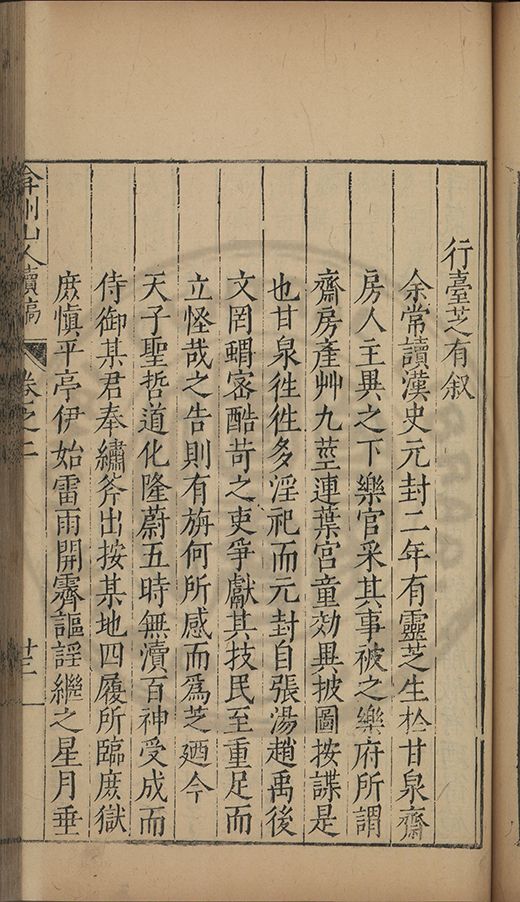 行臺芝有叙
余常讀漢史元封二年有靈芝生於甘泉齋
房人主異之下樂官采其事被之樂府所謂
齋房產艸九莖連葉宮童効異披圖按諜是
也甘泉徃徃多淫祀而元封自張湯趙禹後
文罔蝟宻酷苛之吏爭獻其技民至重足而
立怪哉之告則有旃何所感而爲芝廼今
天子聖哲道化隆蔚五時無瀆百神受成而
侍御某君奉繡斧出按某地四履所臨庶獄
庶慎平亭伊始雷雨開霽謳謡繼之星月垂
弇州山人續稿
卷之二
十三